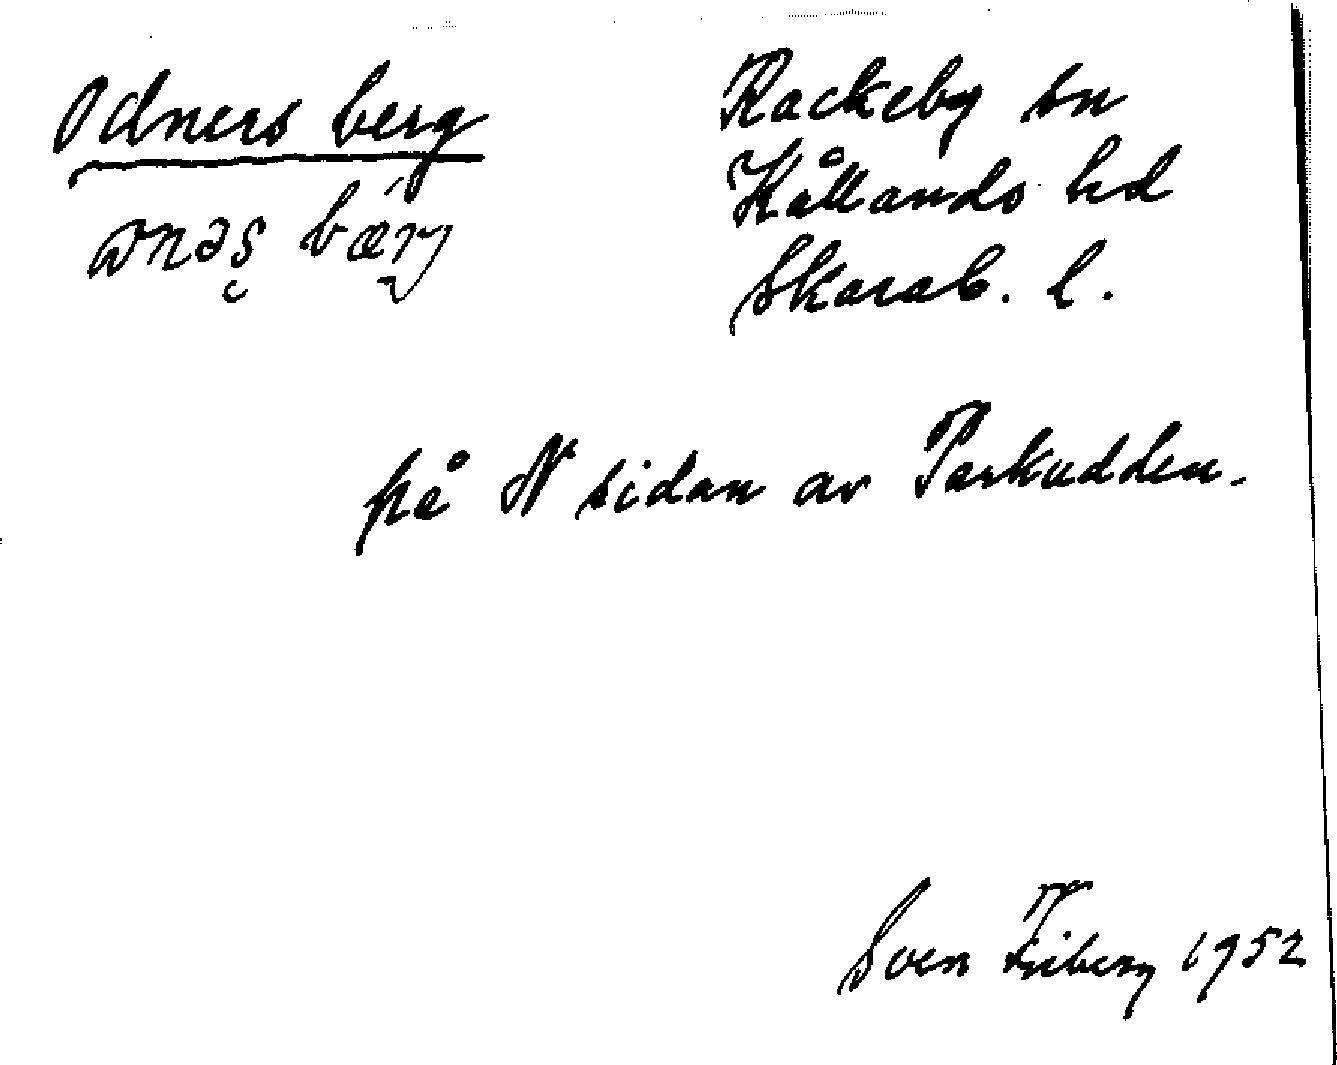 Odners berg
Rackeby sn
Kållands hd
Skarab. l.
på N sidan av Parkudden.
Sven Friberg 1952